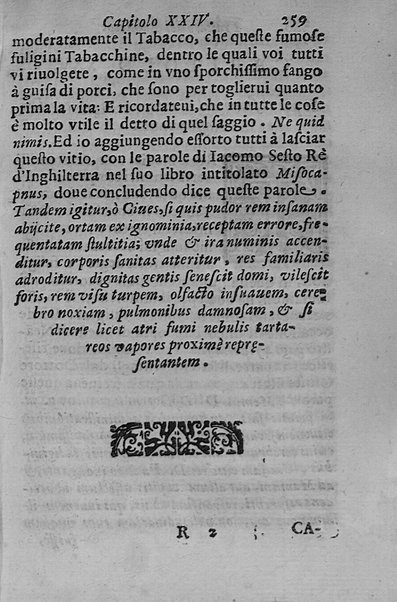 Capitolo XXIV. 259
moderatamente il Tabacco, che queſte fumoſe
fuligini Tabacchine, dentro le quali voi tutti
vi riuolgete, come in vno ſporchiſſimo fango
à guiſa di porci, che ſono per toglierui quanto
prima la vita: E ricordateui, che in tutte le coſe
è molto vtile il detto di quel ſaggio. Ne quid
nimis. Ed io aggiungendo eſſorto tutti à laſciar
queſto vitio, con le parole di Iacomo Seſto Rè
d'Inghilterra nel ſuo libro intitolato Miſoca-
pnus, doue concludendo dice queſte parole.
Tandem igitur, ò Ciues, ſi quis pudor rem inſanam
abijcite, ortam ex ignominia, receptam errore, fre-
quentatam ſtultitia; vnde & ira numinis accen-
ditur, corporis ſanitas atteritur, res familiaris
adroditur, dignitas gentis ſeneſcit domi, vileſcit
foris, rem viſu turpem, olfacto inſuauem, cere-
bro noxiam, pulmonibus damnoſam, & ſi
dicere licet atri fumi nebulis tarta-
reos vapores proximè repre-
ſentantem.
R 2 CA-